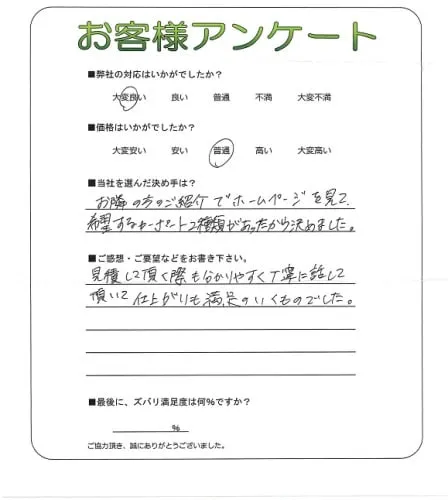 お客様アンケート
■弊社の対応はいかがでしたか?
大変良い 良い 普通 不満 大変不満
■価格はいかがでしたか?
大変安い 安い 普通 高い 大変高い
■当社を選んだ決め手は?
お隣の方のご紹介でホームページを見て、
希望するカーポート2種類があったから決めました。
■ご感想・ご要望などをお書き下さい。
見積して頂く際も分かりやすく丁寧に話して
頂いて仕上がりも満足のいくものでした。
■最後に、ズバリ満足度は何%ですか?
%
ご協力頂き、誠にありがとうございました。